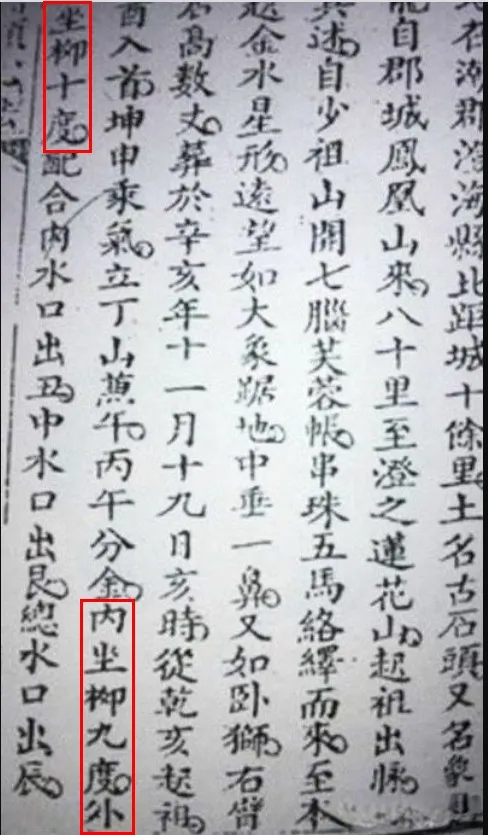 在潮郡澄海縣北距城十餘里土名古石頭又名象
自郡城鳳凰山來八十里至澄之蓮花山起祖出脉
其述自少祖山開七腦芙蓉帳串珠五馬絡繹而來至本
起金水星形遠望如大象踞地中垂一鼻又如卧獅右臂
石高數丈葬於辛亥年十一月十九日亥時從乾亥起祖
酉入首坤申乘氣立丁山蒹午丙午分金內坐柳九度外
坐柳十度配合內水口出丑中水口出艮總水口出辰